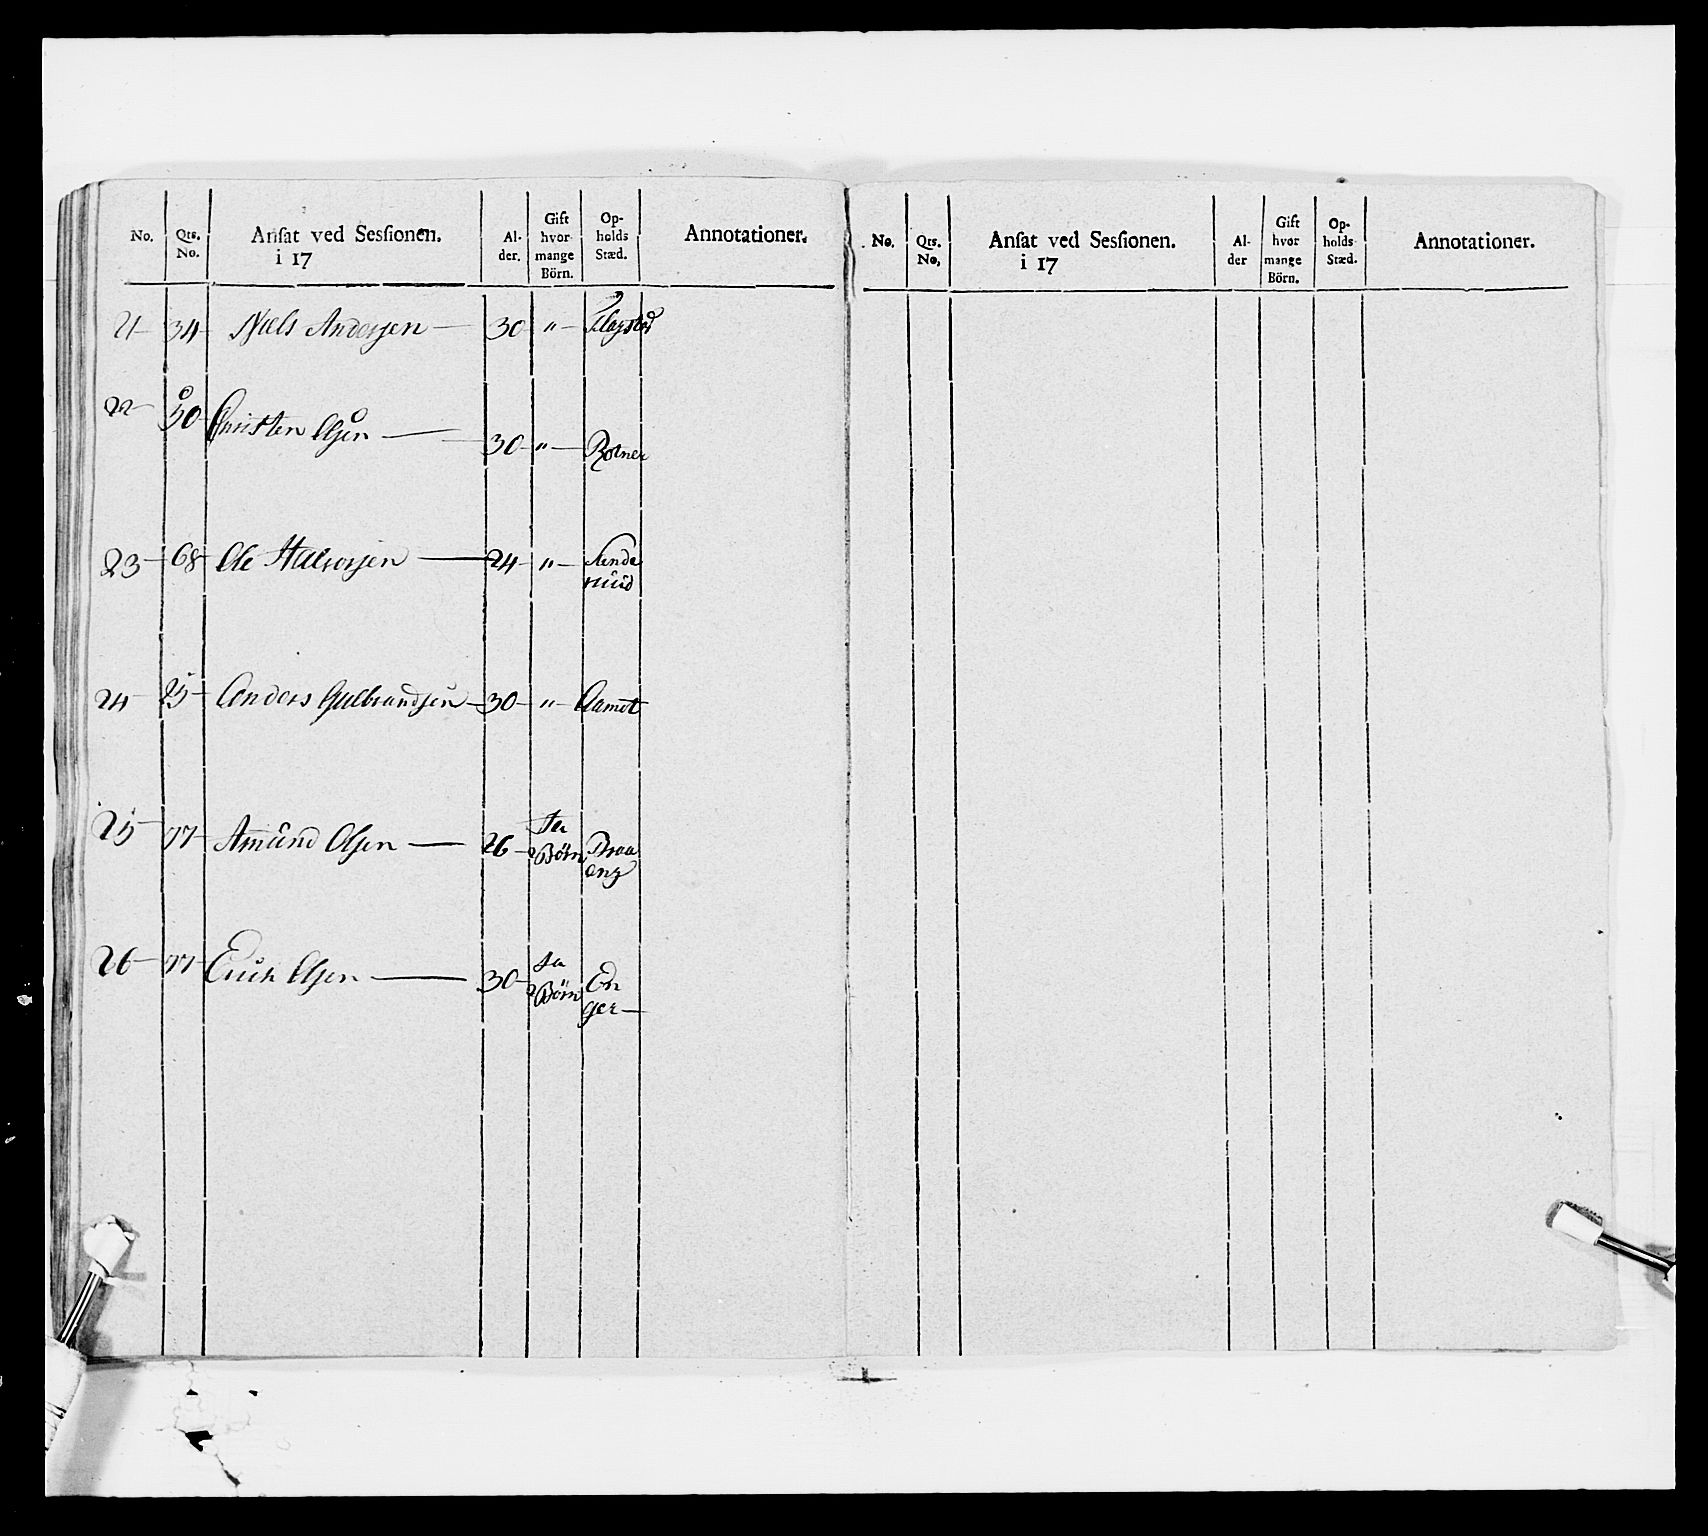 No. Qts. No. Ansat ved Sessionen. i 17 Alder. Gift hvor mange Börn. Opholds Stæd. Annotationer.
21 34 Niels Andersen 30 " Flagstad
22 50 Christen Olsen 30 " Rotner
23 68 Ole Halvorsen 24 " Sande
ruud
24 25 Anders Gulbrandsen 30 " Aamot
25 77 Amund Olsen 26 Ja
2 Börn Braa
eng
26 77 Erich Olsen 30 Ja
2 Börn En
ger
No. Qts. No. Ansat ved Sessionen. i 17 Alder Gift hvor mange Börn. Opholds Stæd. Annotationer.